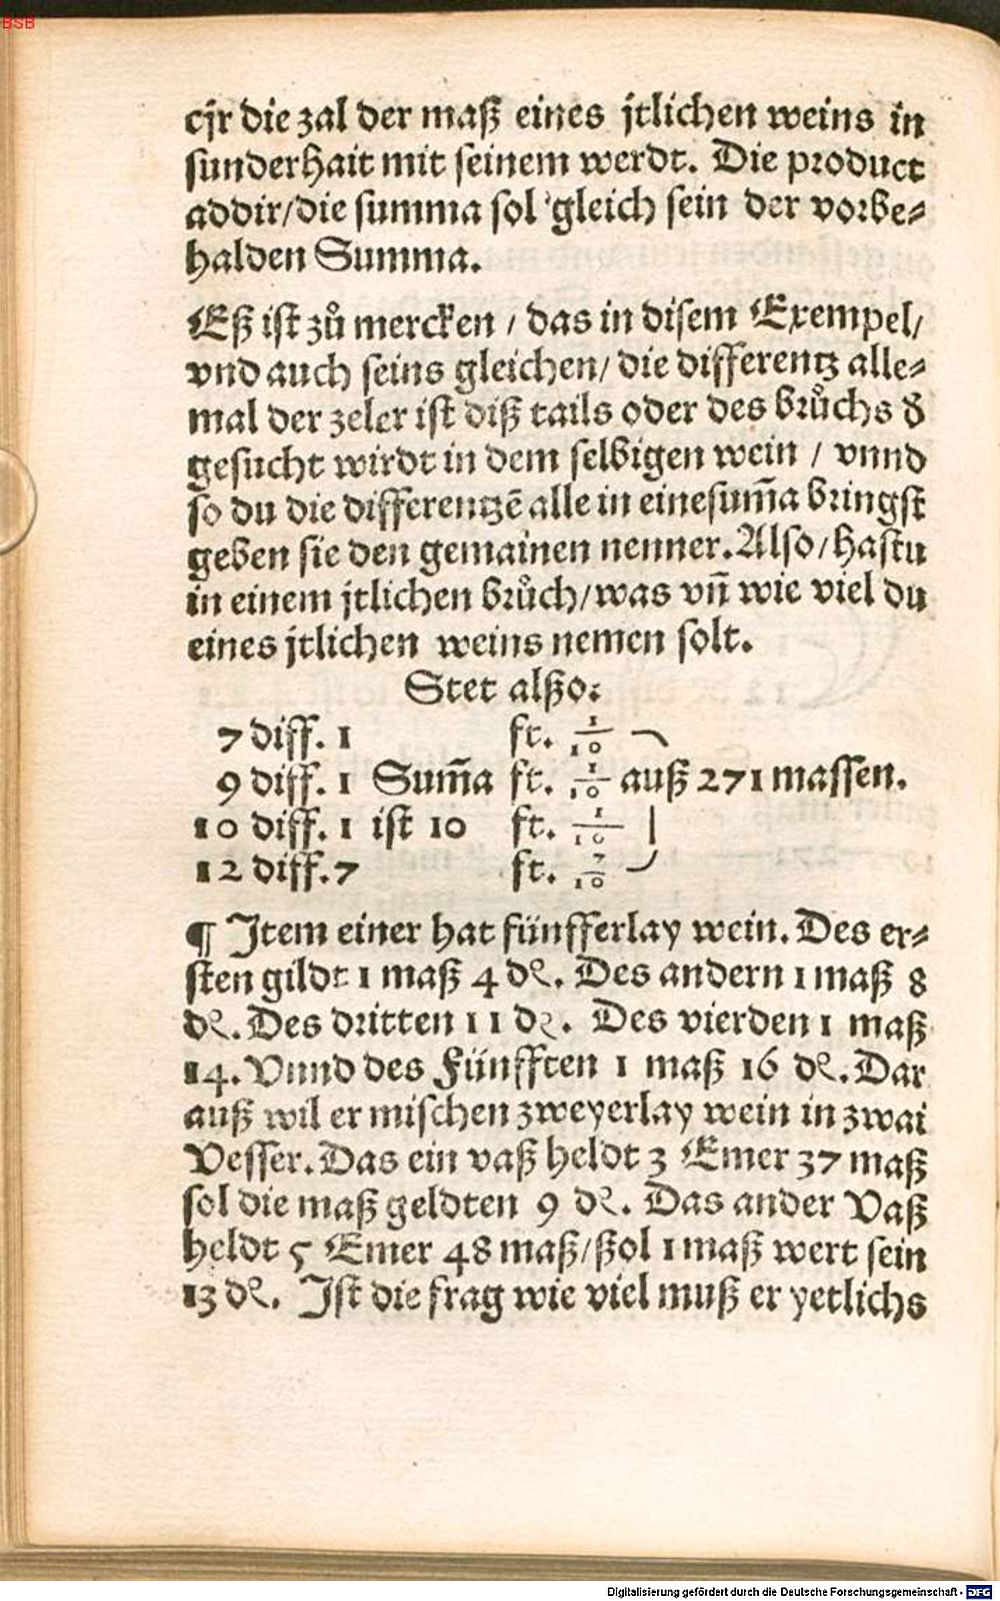 BSB
cir die zal der maß eines jtlichen weins in
sunderhait mit seinem werdt. Die product
addir/die summa sol gleich sein der vorbe⸗
halden Summa.
Eß ist zů mercken / das in disem Exempel/
vnd auch seins gleichen/ die differentz alle⸗
mal der zeler ist diß tails oder des brůchs d̕
gesucht wirdt in dem selbigen wein / vnnd
so du die differentzē alle in eine sum̄a bringst
geben sie den gemainen nenner. Also/hastu
in einem jtlichen brůch/was vn̄ wie viel du
eines jtlichen weins nemen solt.
Stet alßo:
7 diff. 1 ft. 1/10
9 diff. 1 Sum̄a ft. 1/10 auß 271 massen.
10 diff. 1 ist 10 ft. 1/10
12 diff. 7 ft. 7/10
¶ Jtem einer hat fünfferlay wein. Des er⸗
sten gildt 1 maß 4 ₰. Des andern 1 maß 8
₰. Des dritten 11 ₰. Des vierden 1 maß
14. Vnnd des Fünfften 1 maß 16 ₰. Dar
auß wil er mischen zweyerlay wein in zwai
Vesser. Das ein vaß heldt 3 Emer 37 maß
sol die maß geldten 9 ₰. Das ander Vaß
heldt 5 Emer 48 maß/ßol 1 maß wert sein
13 ₰. Jst die frag wie viel muß er yetlichs
Digitalisierung gefördert durch die Deutsche Forschungsgemeinschaft - DFG